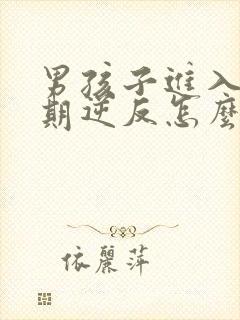 男孩子進入
期逆反怎麼
依麗萍